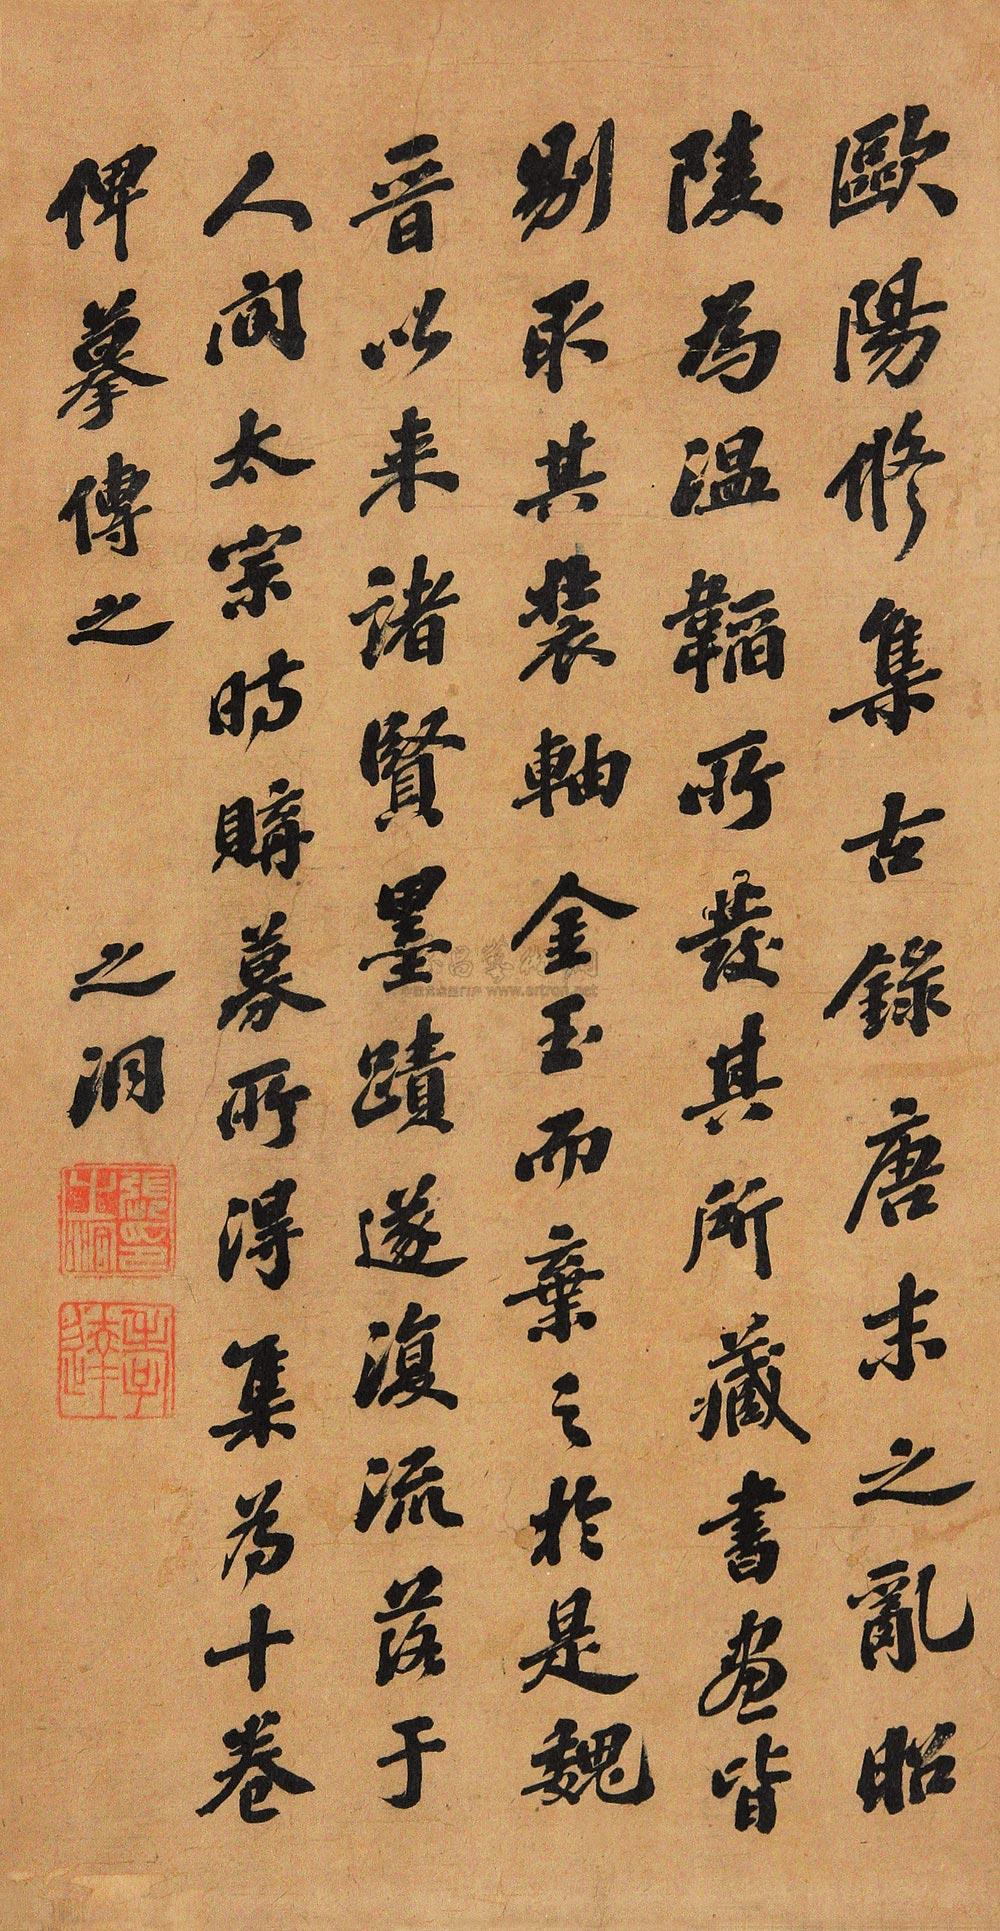 歐陽修集古錄唐末之亂昭
陵為温韜所發其所藏書畫皆
剔取其裝軸金玉而棄之於是魏
晉以来諸賢墨蹟遂復流落于
人間太宗時購募所得集為十卷
俾摹傳之
之洞
張之洞印
孝達
www.artron.net